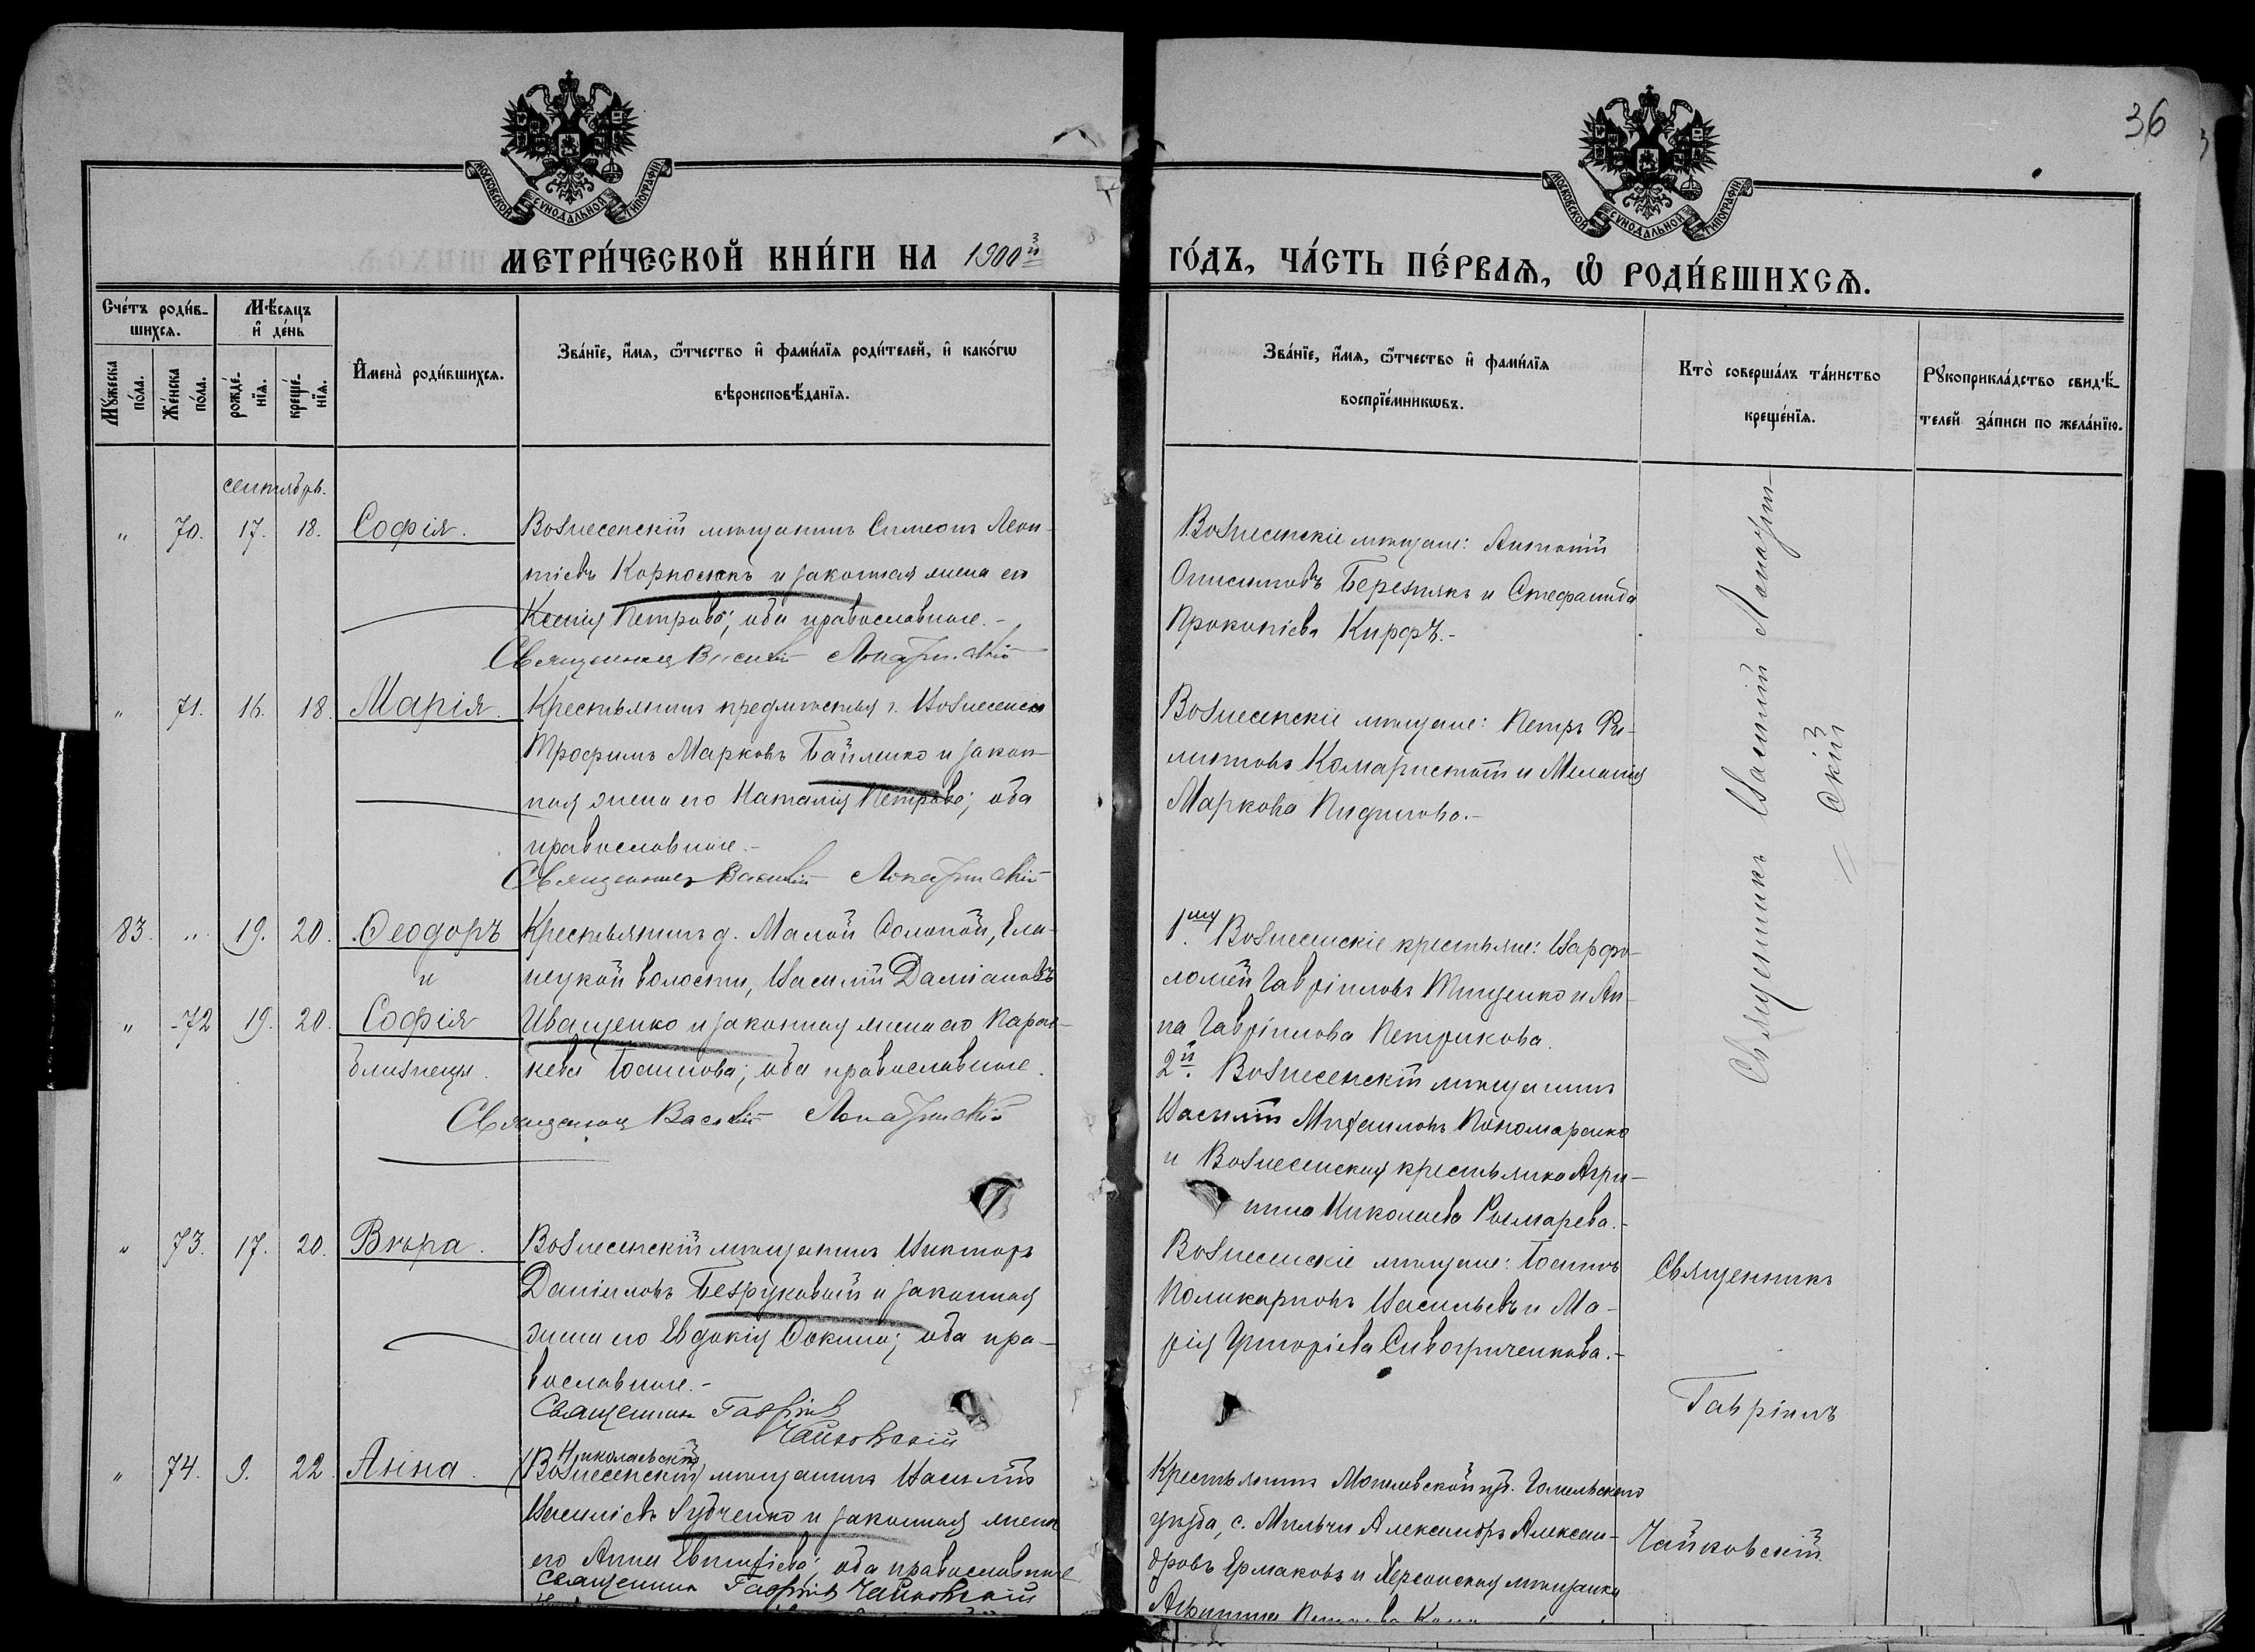 36
МОСКОВСКОЙ СѴНОДАЛЬНОЙ ТИПОГРАФІИ
МОСКОВСКОЙ СѴНОДАЛЬНОЙ ТИПОГРАФІИ
МЕТРИ́ЧЕСКОЙ КНИ́ГИ НА 1900 3й
ГО́ДЪ, ЧА́СТЬ ПЕ́РВАѦ, Ѽ РОДИ́ВШИХСѦ.
Сче́тъ роди́в-
шихсѧ.
Мꙋ́жеска по́ла.
Же́нска по́ла.
Мѣ́сѧцъ
и҆ де́нь
рожде́-
нїѧ.
креще́-
нїѧ.
И҆мена̀ роди́вшихсѧ.
Зва́нїе, и҆́мѧ, ѻ҆́тчество и҆ фами́лїѧ роди́телей, и҆ како́гѡ
вѣроисповѣ́данїѧ.
Зва́нїе, и҆́мѧ, ѻ҆́тчество и҆ фами́лїѧ
воспрїе́мникѡвъ.
Кто̀ соверша́лъ та́инство
креще́нїѧ.
Рꙋкоприкла́дство свидѣ́-
телей за́писи по жела́нїю.
сентябрь.
" 70. 17. 18. Софія.
Вознесенскій мѣщанинъ Симеонъ Леон-
тіевъ Корнослюкъ и законная жена его
Ксенія Петрова; оба православные.-
Священникъ Василій Лопатинскій
Вознесенскіе мѣщане: Антоній
Онисимовъ Березнякъ и Стефанида
Прокопіева Кирфъ.-
" 71. 16. 18. Марія.
Крестьянинъ предмѣстья г. Вознесенска
Трофимъ Марковъ Байленко и закон-
ная жена его Наталія Петрова; оба
православные.-
Священникъ Василій Лопатинскій
Вознесенскіе мѣщане: Петръ Фи-
липповъ Комаристый и Меланія
Маркова
83. " 19. 20. Ѳеодоръ
и
" 72 19. 20. Софія
близнецы.
Крестьянинъ д. Малой Солоной, Ела-
нецкой волости, Василій Даміановъ
Иващенко и законная жена его Парас-
кева Іоаннова; оба православные.
Священникъ Василій Лопатинскій
1му Вознесенскіе крестьяне: Варфо-
ломей Гавріиловъ Тищенко и Ан-
на Гавріилова Петрикова.
2й. Вознесенскій мѣщанинъ
Василій Михаиловъ Пономаренко
и Вознесенская крестьянка Агри-
пина Николаева Рымарева.-
Священникъ Василій Лопатин-
скій
" 73. 17. 20. Вѣра.
Вознесенскій мѣщанинъ Викторъ
Даніиловъ Безруковый и законная
жена его Евдокія Фокина; оба пра-
вославные.-
Священникъ Гавріилъ
Чайковскій
Вознесенскіе мѣщане: Іоаннъ
Поликарповъ Васильевъ и Ма-
рія Григоріева Сивогриченкова.-
Священникъ
Гавріилъ
Чайковскій
" 74. 9. 22. Анна.
Николаевскій
(Вознесенскій) мѣщанинъ Василій
Василіевъ Зубченко и законная жена
его Анна Евтихіева; оба православные
Священникъ Гавріилъ Чайковскій
Крестьянинъ Могилевской губ. Гомельского
уѣзда, с. Мильчи Александръ Алексан-
дровъ Ермаковъ и Херсонская мѣщанка
Агрипина